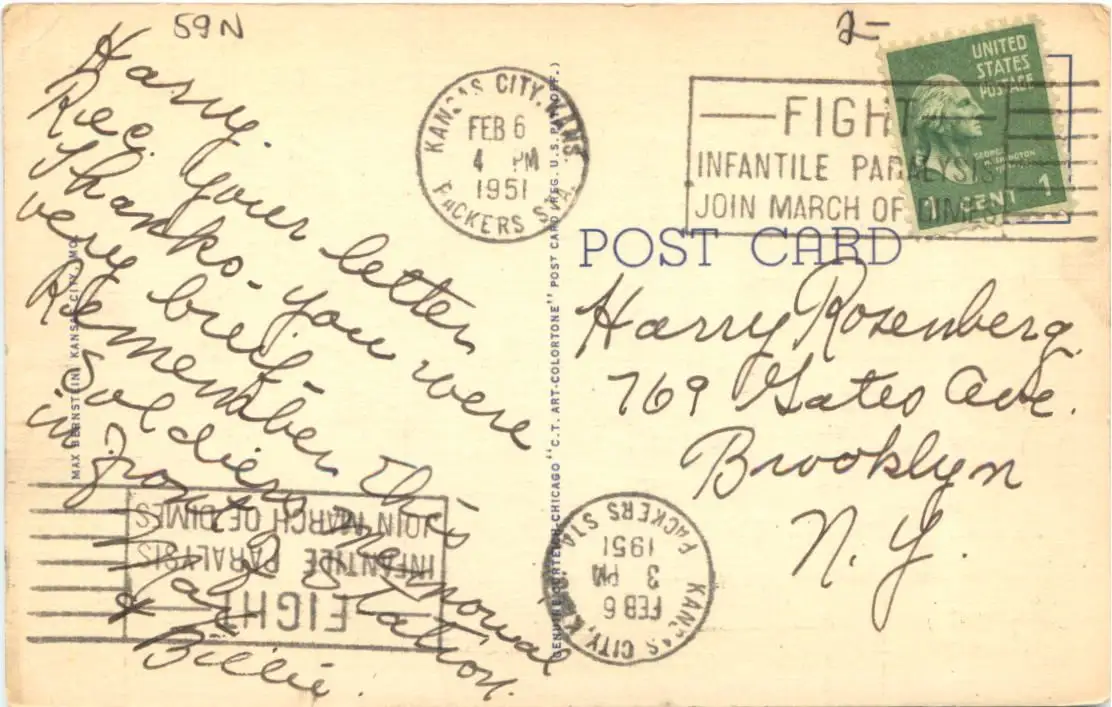 59N
2-
Harry.
Rec. your letter
Thanks - you were
very brief -
Remember this
Soldiers Memorial
in front of Station.
& Billie.
MAX BERNSTEIN, KANSAS CITY, MO.
GENUINE CURTEICH-CHICAGO "C.T. ART-COLORTONE" POST CARD (REG. U.S. PAT. OFF.)
KANSAS CITY, KANS
FEB 6
4 PM
1951
PACKERS STA.
FIGHT
INFANTILE PARALYSIS
JOIN MARCH OF DIMES
UNITED
STATES
POSTAGE
GEORGE
WASHINGTON
1 CENT 1
POST CARD
Harry Rosenberg
769 Gates Ave.
Brooklyn
N. Y.
FIGHT
INFANTILE PARALYSIS
JOIN MARCH OF DIMES
KANSAS CITY, KANS
FEB 6
3 PM
1951
PACKERS STA